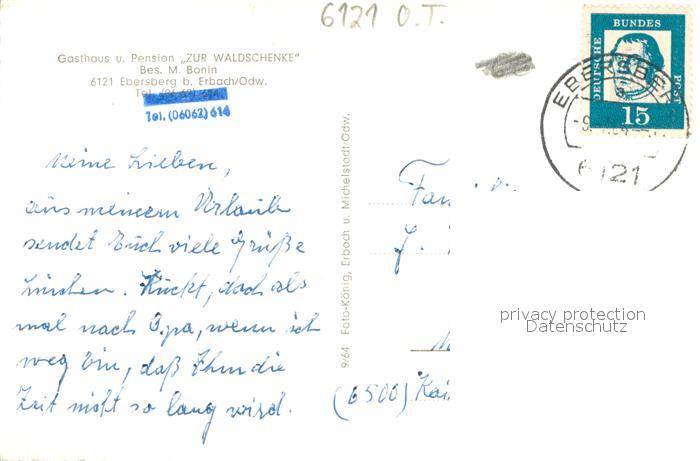 6121 O.T.
Gasthaus u. Pension „ZUR WALDSCHENKE"
Bes. M. Bonin
6121 Ebersberg b. Erbach/Odw.
Tel. (06062) 614
Meine Lieben,
aus meinem Urlaub
sendet Euch viele Grüße
doch als
mal nach Opa, wenn ich
weg bin, daß Ihm die
Zeit nicht so lang wird.
9/64 Foto-König, Erbach u. Michelstadt/Odw.
DEUTSCHE BUNDES POST
15
EBERSBER
6121
Fam
(6500) Kai
privacy protection
Datenschutz